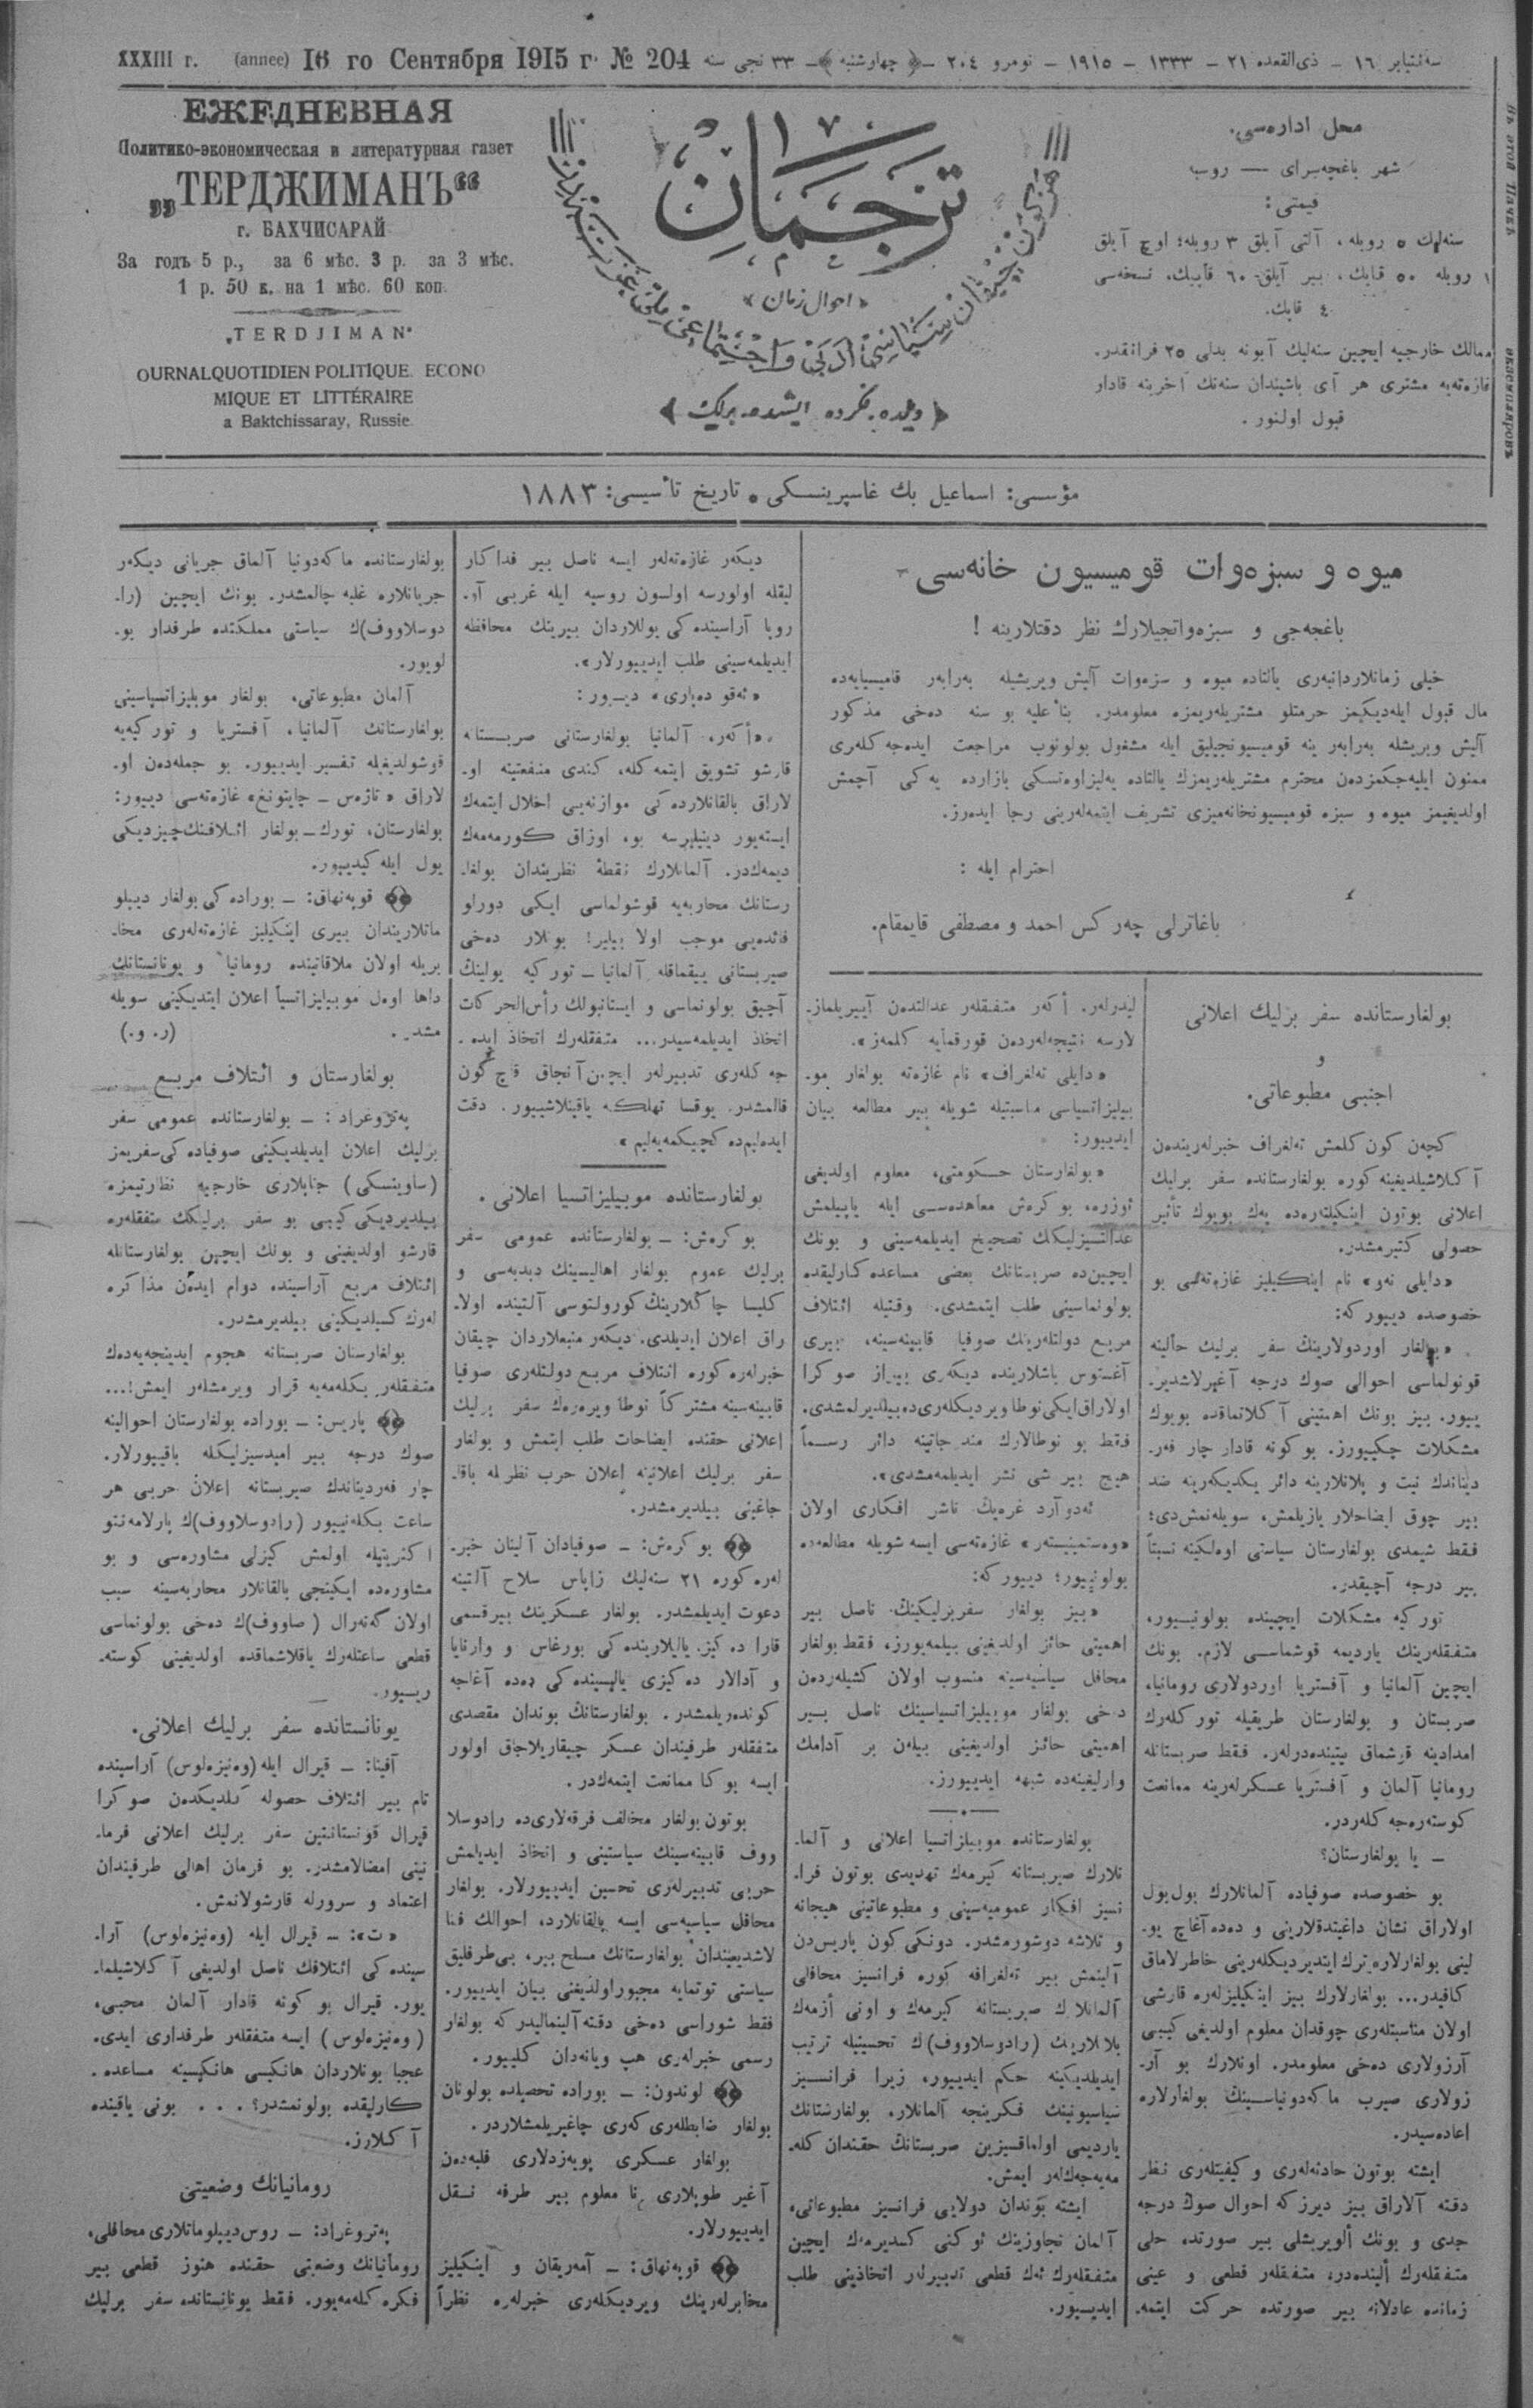 XXXIII г. (annee) 16 го Сентября 1915 г. № 204 سه‌نتیابر ١٦ – ذی‌القعده ٢١ – ١٣٣٣ – ١٩١٥ – نومرو ٢٠٤ –﴿ چهارشنبه ﴾– ٣٣ نجی سنه
ЕЖЕДНЕВНАЯ
Политико-экономическая и литературная газет
„ТЕРДЖИМАНЪ“
г. БАХЧИСАРАЙ
За годъ 5 р., за 6 мѣс. 3 р. за 3 мѣс.
1 р. 50 к. на 1 мѣс. 60 коп.
„TERDJIMAN“
OURNAL QUOTIDIEN POLITIQUE. ECONO
MIQUE ET LITTÉRAIRE
a Baktchissaray, Russie.
ترجمان
« احوال زمان »
﴿ دیلده، فكرده ایشده، برلیك ﴾
محل اداره‌سی.
شهر باغچه‌سرای — روب
قیمتی:
سنه‌لك ٥ روبله، آلتی آیلق ٣ روبله؛ اوچ آیلق
١ روبله ٥٠ قاپك، بیر آیلق ٦٠ قاپیك. نسخه‌سی
٤ قاپك.
ممالك خارجیه ایچین سنه‌لیك آبونه بدلی ٢٥ فرانقدر.
غازه‌ته‌یه مشتری هر آی باشیندان سنه‌نك آخرینه قادار
قبول اولنور.
مؤسسی: اسماعیل بك غاسپرینسكی • تاریخ تأسیسی: ١٨٨٣
میوه و سبزه‌وات قومیسیون خانه‌سی
باغچه‌جی و سبزه‌واتجیلارك نظر دقتلارینه !
خیلی زمانلاردانبه‌ری یالتاده میوه و سزه‌وات آلیش ویریشیله به‌رابه‌ر قامیسیایه‌ده
مال قبول ایله‌دیكیمز حرمتلو مشتریله‌ریمزه معلومدر. بناً علیه بو سنه ده‌خی مذكور
آلیش ویریشله به‌رابه‌ر ینه قومیسیونجیلیق ایله مشغول بولونوب مراجعت ایده‌جه كله‌ری
ممنون ایلیه‌جكمزده‌ن محترم مشتریله‌ریمزك یالتاده یه‌لیزاوه‌تسكی بازارده یه‌كی آچمش
اولدیغیمز میوه و سبزه قومیسیونخانه‌میزی تشریف ایتمه‌له‌رینی رجا ایده‌رز.
احترام ایله :
باغاترلی چه‌ركس احمد و مصطفی قایمقام.
بولغارستانده سفر برلیك اعلانی
و
اجنبی مطبوعاتی.
كچه‌ن كون كلمش ته‌لغراف خبرله‌ریندەن
آكلاشیلدیغینه كوره بولغارستانده سفر برلیك
اعلانی بوتون اینكیلتره‌ده پەك بویوك تأثیر
حصولی كتیرمشدر.
«دایلی نه‌و» نام اینكیلیز غازه‌ته‌سی بو
خصوصده دیبور كه:
«بولغار اوردولارینڭ سفر برلیك حالینه
قونولماسی احوالی صوك درجه آغیرلاشدیر-
ییور. بیز بونك اهمیتینی آكلاتماقده بویوك
مشكلات چكییورز. بو كونه قادار چار فه‌ر-
دیناندك نیت و پلانلارینه دائر یكدیكه‌رینه ضد
بیر چوق ایضاحلار یازیلمش، سویله‌نمش‌دی؛
فقط شیمدی بولغارستان سیاستی اوه‌لكینه نسبتاً
بیر درجه آچیقدر.
توركیه مشكلات ایچینده بولونییور،
متفقله‌رینك یاردیمه قوشماسی لازم. بونك
ایچین آلمانیا و آفستریا اوردولاری رومانیا،
صربستان و بولغارستان طریقیله توركله‌رك
امدادینه قوشماق نیتینده‌درله‌ر. فقط صربستانله
رومانیا آلمان و آفستریا عسكرله‌رینه ممانعت
كوستەره‌جه كله‌ردر.
– یا بولغارستان؟
بو خصوصده صوفیاده آلمانلارك بول‌بول
اولاراق نشان داغیتدقلارینی و ده‌ده آغاچ یو-
لینی بولغارلاره ترك ایتدیردیكله‌رینی خاطرلاماق
كافیدر... بولغارلارك بیز اینكیلیزله‌ره قارشی
اولان مناسبتله‌ری چوقدان معلوم اولدیغی كیبی
آرزولاری ده‌خی معلومدر. اونلارك بو آر-
زولاری صیرب ماكه‌دونیاسینڭ بولغارلاره
اعاده‌سیدر.
ایشته بوتون حادثه‌له‌ری و كیفیتله‌ری نظر
دقته آلاراق بیز دیرزكه احوال صوڭ درجه
جدی و بونك ألویریشلی بیر صورتده حلی
متفقله‌رك ألینده‌در، متفقله‌ر قطعی و عینی
زمانده عادلانه بیر صورتده حركت ایتمه-
لیدرله‌ر. أكه‌ر متفقله‌ر عدالتدەن آییریلماز-
لارسه نتیجه‌له‌ردەن قورقمایه كلمه‌ز».
«دایلی ته‌لغراف» نام غازه‌ته بولغار مو-
بیلیزاتسیاسی مناسبتیله شویله بیر مطالعه بیان
ایدییور:
«بولغارستان حكومتی، معلوم اولدیغی
ئوزره، بوكره‌ش معاهده‌سی ایله یاپیلمش
عدالتسیزلیكك تصحیح ایدیلمه‌سینی و بونك
ایچین‌ده صربستانك بعضی مساعده‌كارلیقده
بولونماسینی طلب ایتمشدی. وقتیله ائتلاف
مربع دولتله‌رینك صوفیا قابینه‌سینه، بیری
آغستوس باشلارینده دیكه‌ری بیراز صوكرا
اولاراق ایكی نوطا ویردیكله‌ری‌ده بیلدیرلمشدی.
فقط بو نوطالارك مندرجاتینه دائر رسماً
هیچ بیر شی نشر ایدیلمه‌مشدی».
ئه‌دوآرد غره‌یڭ ناشر افكاری اولان
«وه‌ستمینیسته‌ر» غازه‌ته‌سی ایسه شویله مطالعه‌ده
بولونییور؛ دیبور كه:
«بیز بولغار سفربرلیكینڭ ناصل بیر
اهمیتی حائز اولدیغینی بیلمه‌یورز، فقط بولغار
محافل سیاسیه‌سینه منسوب اولان كشیله‌ردەن
دخی بولغار موبیلیزاتسیاسینك ناصل بیر
اهمیتی حائز اولدیغینی بیله‌ن بر آدامك
وارلیغینه‌ده شبهه ایدییورز.
بولغارستانده موبیلیزاتسیا اعلانی و آلما-
نلارك صیربستانه كیرمه‌ك تهدیدی بوتون فرا-
نسیز افكار عمومیه‌سینی و مطبوعاتینی هیجانه
و تلاشه دوشورمشدر. دونكی كون پاریس‌دن
آلینمش بیر ته‌لغرافه كوره فرانسیز محافلی
آلمانلارك صیربستانه كیرمه‌ك و اونی أزمه‌ك
پلانلارینك (رادوسلاووف)ك تحسینیله ترتیب
ایدیلدیكینه حكم ایدییور، زیرا فرانسیز
سیاسیونینك فكرینجه آلمانلار، بولغارستانك
یاردیمی اولماقسیزین صربستانڭ حقندان كله-
مه‌یه‌جه‌كلەر ایمش.
ایشته بوندان دولایی فرانسیز مطبوعاتی،
آلمان تجاوزینك ئوكنی كسدیرمه‌ك ایچین
متفقله‌رك ئه‌ك قطعی تدبیرله‌ر اتخاذینی طلب
ایدییور.
دیكه‌ر غازه‌ته‌له‌ر ایسه ناصل بیر فداكار
لیقله اولورسه اولسون روسیه ایله غربی آو-
روپا آراسینده كی یوللاردان بیرینك محافظه
ایدیلمه‌سینی طلب ایدییورلار».
«ئه‌قو ده‌پاری» دیبور :
«أكه‌ر، آلمانیا بولغارستانی صربستانه
قارشو تشویق ایتمه كله، كندی منفعتینه او-
لاراق بالقانلارده كی موازنه‌یی اخلال ایتمه‌ك
ایسته‌یور دینیلیرسه بو، اوزاق كورمه‌مه‌ك
دیمه‌كدر. آلمانلارك نقطهٔ نظریندان بولغا-
رستانك محاربه‌یه قوشولماسی ایكی دورلو
فائده‌یی موجب اولا بیلیر! بونلار ده‌خی
صیربستانی ییقماقله آلمانیا – توركیه یولینڭ
آچیق بولونماسی و ایستانبولك رأس‌الحركات
اتخاذ ایدیلمه‌سیدر... متفقله‌رك اتخاذ ایده-
جه كله‌ری تدبیرله‌ر ایچین آنجاق قاچ كون
قالمشدر. یوقسا تهلكه یاقینلاشییور. دقت
ایده‌لیم‌ده كچیكمه‌یه‌لیم»
بولغارستانده موبیلیزاتسیا اعلانی.
بوكره‌ش: – بولغارستانده عمومی سفر
برلیك عموم بولغار اهالیسینك دبدبه‌سی و
كلیسا چاڭلارینڭ كورولتوسی آلتینده اولا-
راق اعلان ایدیلدی. دیكه‌ر منبعلاردان چیقان
خبرله‌ره كوره ائتلاف مربع دولتله‌ری صوفیا
قابینه‌سینه مشتركاً نوطا ویره‌ره‌ك سفر برلیك
اعلانی حقنده ایضاحات طلب ایتمش و بولغار
سفر برلیك اعلانینه اعلان حرب نظرله باقا-
جاغینی بیلدیرمشدر.
﴿﴾ بوكره‌ش: – صوفیادان آلینان خبر-
له‌ره كوره ٢١ سنه‌لیك زاپاس سلاح آلتینه
دعوت ایدیلمشدر. بولغار عسكرینك بیرقسمی
قارا ده‌كیز یالیلارینده كی بورغاس و وارنایا
و آدالار ده‌كیزی یالیسینده كی ده‌ده آغاجه
كونده‌ریلمشدر. بولغارستانڭ بوندان مقصدی
متفقله‌ر طرفیندان عسكر چیقاریلاجاق اولور
ایسه بوكا ممانعت ایتمه‌كدر.
بوتون بولغار مخالف فرقه‌لاری‌ده رادوسلا
ووف قابینه‌سینك سیاستینی و اتخاذ ایدیلمش
حربی تدبیرله‌ری تحسین ایدییورلار. بولغار
محافل سیاسیه‌سی ایسه بالقانلارده احوالك فنا
لاشدیغیندان بولغارستانك مسلح بیر، بی‌طرفلیق
سیاستی توتمایه مجبور اولدیغنی بیان ایدییور.
فقط شوراسی ده‌خی دقته آلینمالیدر كه بولغار
رسمی خبرله‌ری هپ ویانه‌دان كلییور.
﴿﴾ لوندون: – بوراده تحصیلده بولونان
بولغار ضابطله‌ری كه‌ری چاغیریلمشلاردر.
بولغار عسكری پویه‌زدلاری فلبه‌دەن
آغیر طوپلاری نا معلوم بیر طرفه نقل
ایدییورلار.
﴿﴾ قوپه‌نهاق: – آمه‌ریقان و اینكیلیز
مخابرله‌رینك ویردیكله‌ری خبرله‌ره نظراً
بولغارستانده ماكه‌دونیا آلماق جریانی دیكه‌ر
جریانلاره غلبه چالمشدر. بونك ایچین (را-
دوسلاووف)ك سیاستی مملكتده طرفدار بو-
لویور.
آلمان مطبوعاتی، بولغار موبلیزاتسیاسینی
بولغارستانك آلمانیا، آفستریا و توركیه‌یه
قوشولدیغیله تفسیر ایدییور. بو جمله‌دەن او-
لاراق «تازه‌س – چایتونغ» غازه‌ته‌سی دییور:
بولغارستان، تورك – بولغار ائتلافنك‌چیزدیكی
یول ایله كیدییور.
﴿﴾ قوپه‌نهاق: – بوراده كی بولغار دیپلو
ماتلاریندان بیری اینكیلیز غازه‌ته‌له‌ری مخا-
بریله اولان ملاقاتینده رومانیا و یونانستانك
داها اوه‌ل موبیلیزاتسیا اعلان ایتدیكینی سویله
مشدر. (ر. و.)
بولغارستان و ائتلاف مربع
په‌تروغراد: – بولغارستانده عمومی سفر
برلیك اعلان ایدیلدیكینی صوفیاده كی‌سفریمز
(ساوینسكی) جنابلاری خارجیه نظارتیمزه
بیلدیردیكی كیبی بو سفر برلیكك متفقله‌ره
قارشو اولدیغینی و بونك ایچین بولغارستانله
ائتلاف مربع آراسینده دوام ایده‌ن مذاكره
له‌رك كسیلدیكینی بیلدیرمشدر.
بولغارستان صربستانه هجوم ایدینجه‌یه‌دەك
متفقله‌ر بكله‌مه‌یه قرار ویرمشلەر ایمش!...
﴿﴾ پاریس: – بوراده بولغارستان احوالینه
صوك درجه بیر امیدسیزلیكله باقییورلار.
چار فه‌ردیناندك صیربستانه اعلان حربی هر
ساعت بكله‌نییور (رادوسلاووف)ك پارلامه‌نتو
اكثریتیله اولمش كیزلی مشاوره‌سی و بو
مشاوره‌ده ایكینجی بالقانلار محاربه‌سینه سبب
اولان كه‌نه‌رال (صاووف)ك ده‌خی بولونماسی
قطعی ساعتله‌رك یاقلاشماقده اولدیغینی كوسته-
ریییور.
یونانستانده سفر برلیك اعلانی.
آفینا: – قیرال ایله (وه‌نیزه‌لوس) آراسینده
تام بیر ائتلاف حصوله كلدیكدەن صوكرا
قیرال قونستانتین سفر برلیك اعلانی فرما-
نینی امضالامشدر. بو فرمان اهالی طرفیندان
اعتماد و سرورله قارشولانمش.
«ت»: – قیرال ایله (وه‌نیزه‌لوس) آرا-
سینده كی ائتلافك ناصل اولدیغی آكلاشیلما-
یور. قیرال بو كونه قادار آلمان محبی،
(وه‌نیزه‌لوس) ایسه متفقله‌ر طرفداری ایدی.
عجبا بونلاردان هانكیسی هانكیسینه مساعده-
كارلیقده بولونمشدر؟ . . . بونی یاقینده
آكلارز.
رومانیانك وضعیتی
په‌تروغراد: – روس دیپلوماتلاری محافلی،
رومانیانك وضعیتی حقنده هنوز قطعی بیر
فكره كله‌مه‌یور. فقط یونانستانده سفر برلیك